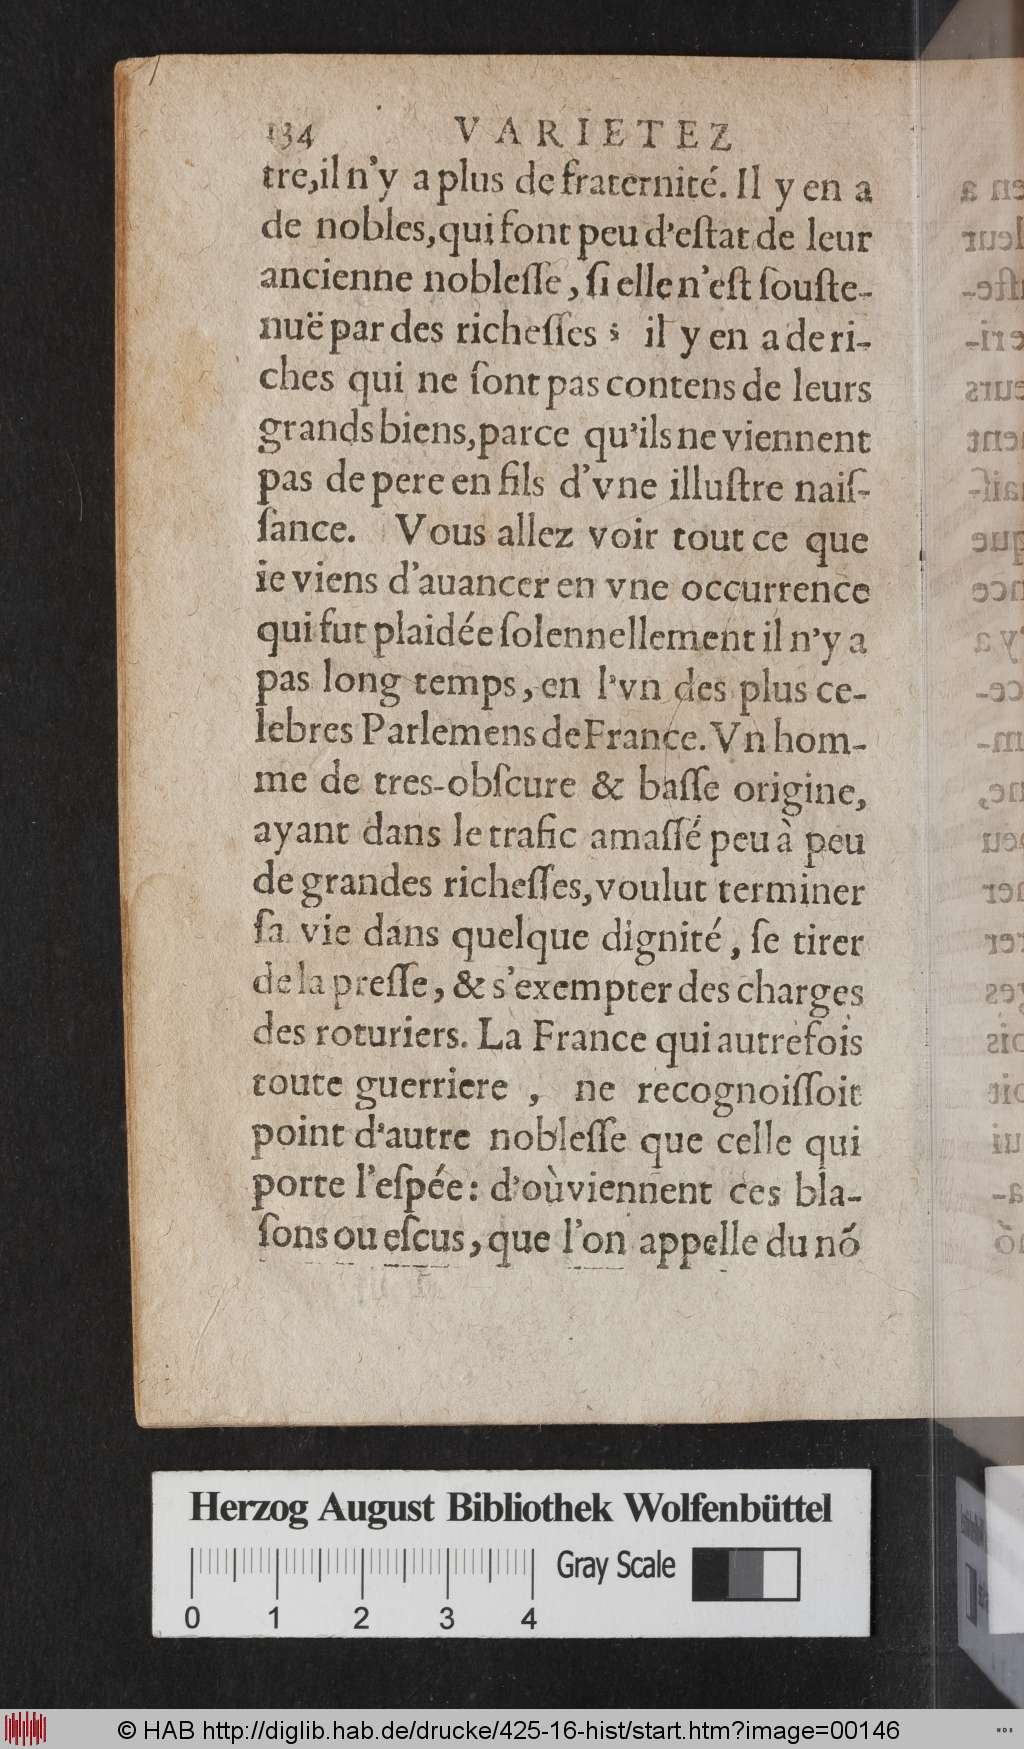 134 VARIETEZ
tre, il n'y a plus de fraternité. Il y en a
de nobles, qui font peu d'eſtat de leur
ancienne nobleſſe, ſi elle n'eſt ſouſte-
nuë par des richeſſes ; il y en a de ri-
ches qui ne ſont pas contens de leurs
grands biens, parce qu'ils ne viennent
pas de pere en fils d'vne illuſtre naiſ-
ſance. Vous allez voir tout ce que
ie viens d'auancer en vne occurrence
qui fut plaidée ſolennellement il n'y a
pas long temps, en l'vn des plus ce-
lebres Parlemens de France. Vn hom-
me de tres-obſcure & baſſe origine,
ayant dans le trafic amaſſé peu à peu
de grandes richeſſes, voulut terminer
ſa vie dans quelque dignité, ſe tirer
de la preſſe, & s'exempter des charges
des roturiers. La France qui autrefois
toute guerriere , ne recognoiſſoit
point d'autre nobleſſe que celle qui
porte l'eſpée: d'où viennent ces bla-
ſons ou eſcus, que l'on appelle du nõ
Herzog August Bibliothek Wolfenbüttel
Gray Scale
0 1 2 3 4
© HAB http://diglib.hab.de/drucke/425-16-hist/start.htm?image=00146